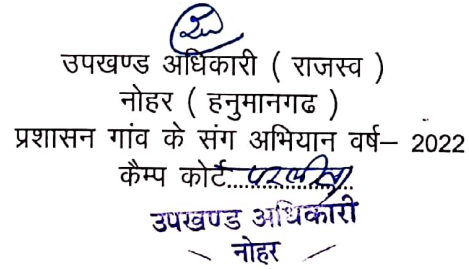 उपखण्ड अधिकारी ( राजस्व )
नोहर ( हनुमानगढ )
प्रशासन गांव के संग अभियान वर्ष– 2022
कैम्प कोर्ट
उपखण्ड अधिकारी
नोहर